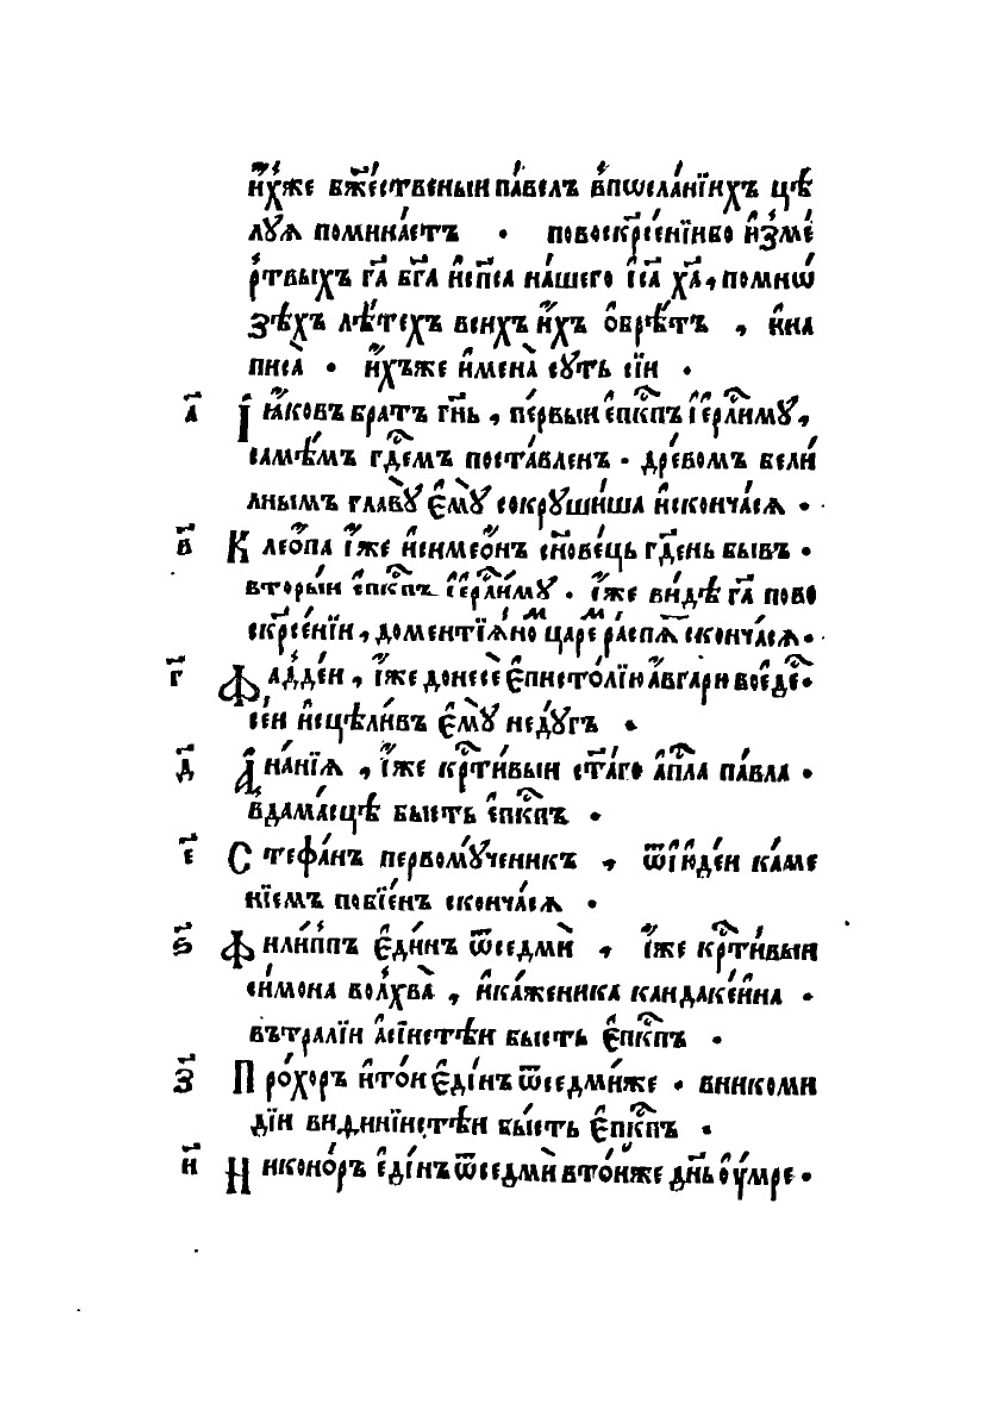 и҆́хже бж҃е́ственыи па́велъ в̾пѡсла́нїихъ цѣ
луѧ помина́етъ . повоскр҃се́нїибо и҆з̾ме́
р̾твыхъ гд҃а бг҃а и҆сп҃са на́шего і҆с҃а хр҃а, помнѡ́
зѣ́хъ лѣ́техъ всихъ и҆́хъ ѡ҆брѣ́тъ , и҆на
писа̀ . и҆́хъже и҆мена̀ суть сїи .
а҃ І҆ꙗ҆́ковъ братъ гн҃ь, пе́рвыи є҆пкⷭ҇пъ і҆єрⷭ҇ли́му,
самѣ́мъ гдⷭ҇емъ поста́вленъ . дре́вомъ бели́
лнымъ главꙋ̀ є҆мꙋ̀ сокрꙋши́ша и҆сконча́сѧ .
в҃ Клеѡ́па и҆́же и҆симеѡ́нъ сн҃ове́ць гдⷭ҇ень бывъ .
вторы́и є҆пкⷭ҇пъ і҆єрⷭ҇ли́му . и҆́же ви́дѣ гд҃а пово
скр҃се́нїи, доментїѧ́номъ царемъ ра́спѧтъ сконча́сѧ .
г҃ Фад̾де́и, и҆́же донесѐ є҆писто́лїю а҆́вгари воє҆деⷭ҇
се́и и҆сцѣли́въ є҆мꙋ̀ недꙋ́гъ .
д҃ А҆на́нїѧ, и҆́же крⷭ҇ти́выи ст҃а́го а҆пⷭ҇ла па́вла .
в̾дама́сцѣ бысть є҆пкⷭ҇пъ .
є҃ Стефа́нъ первомꙋ́ченикъ , ѿі҆ю҆де́и ка́ме
нїемъ побїе́нъ сконча́сѧ .
ѕ҃ Фили́п̾пъ є҆ди́нъ ѿседмѝ , и҆́же крⷭ҇ти́выи
си́мона вол̾хва̀, и҆ка́женика кандакі́ина .
вътралїи а҆сі́истѣи бысть є҆пкⷭ҇пъ .
з҃ Про́хоръ и҆то́и є҆ді́нъ ѿседми́же . вникоми
дїи видини́истѣи бы́сть є҆пкⷭ҇пъ .
и҃ Никоно́ръ є҆ді́нъ ѿседмѝ вто́йже дн҃ь ѹ҆́мре .